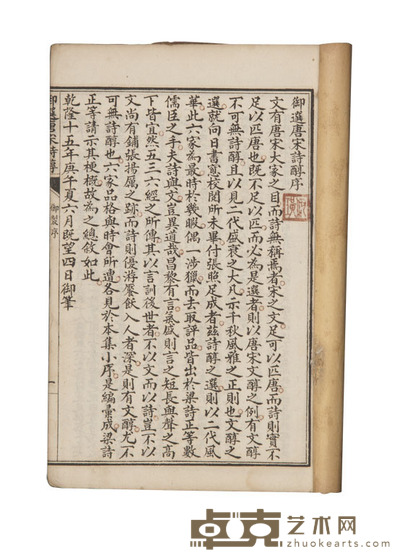 御選唐宋詩醇序
文有唐宋大家之目而詩無稱焉者宋之文足可以匹唐而詩則實不
足以匹唐也既不足以匹而必為是選者則以唐宋文醇之例有文醇
不可無詩醇且以見二代盛衰之大凡示千秋風雅之正則也文醇之
選就向日書窻校閱所未畢付張照足成者兹詩醇之選則以二代風
華此六家為最時於幾暇偶一涉獵而去取評品皆出於梁詩正等數
儒臣之手夫詩與文豈異道哉昌黎有言氣盛則言之短長與聲之高
下皆宜然五三六經之所傳其以言訓後世者不以文而以詩豈不以
文尚有鋪張揚厲之跡而詩則優游饜飫入人者深是則有文醇尤不
可無詩醇也六家品格與時會所遭各見於本集小序是編彙成梁詩
正等請示其梗概故為之總敘如此
乾隆十五年庚午夏六月既望四日御筆
御選唐宋詩醇
御製序
一
卓克艺术网
www.zhuokearts.com